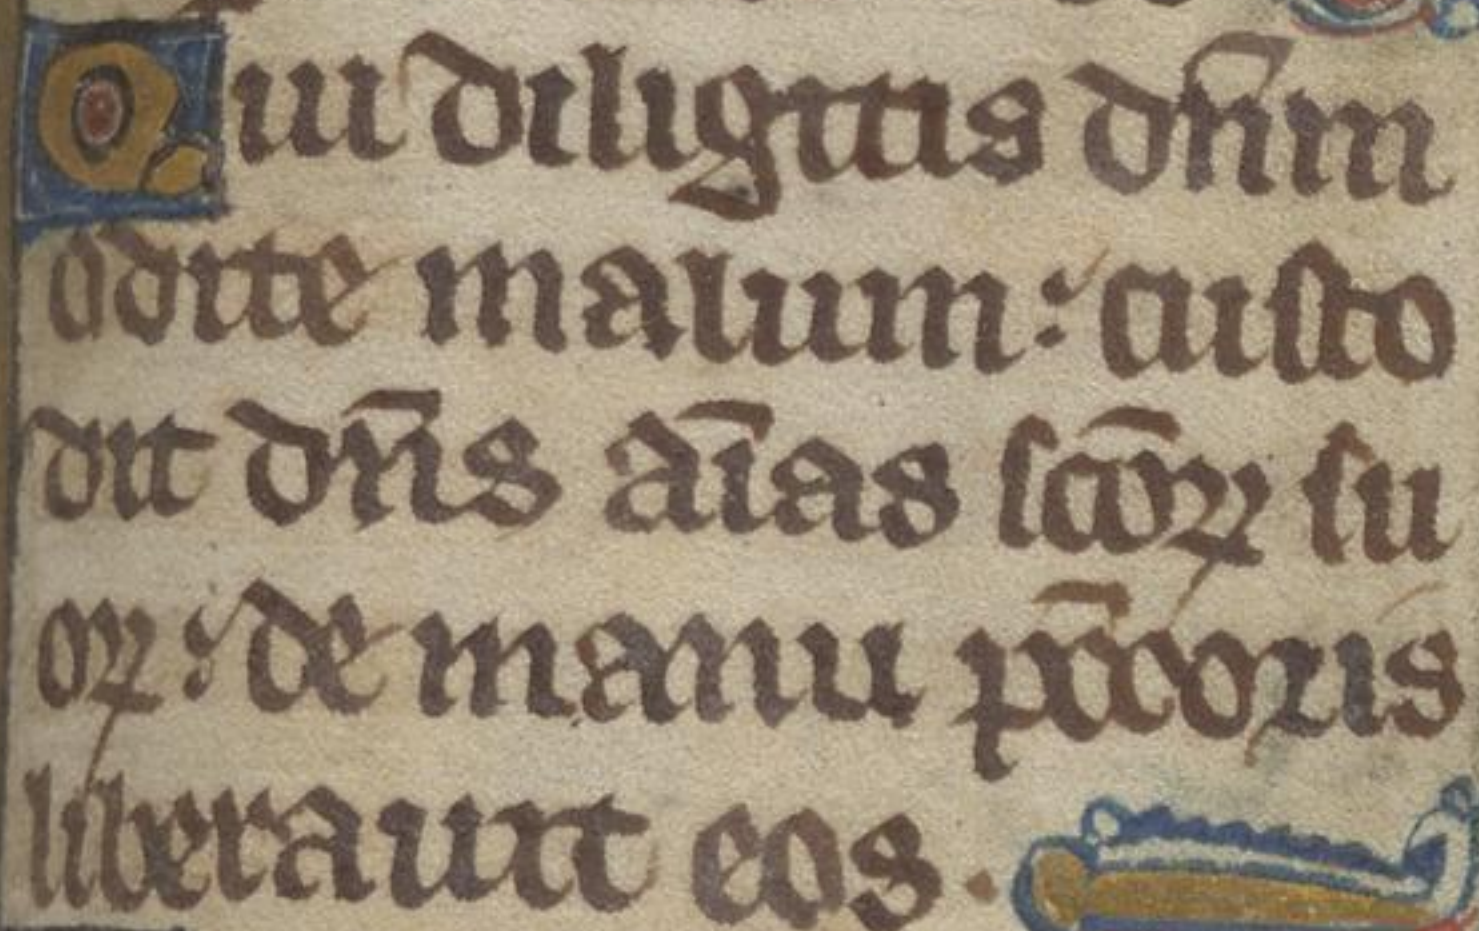 Qui diligitis dn̄m
odite malum: custo
dit dn̄s aīas sc̄oꝝ su
oꝝ: de manu pc̄coris
liberauit eos.